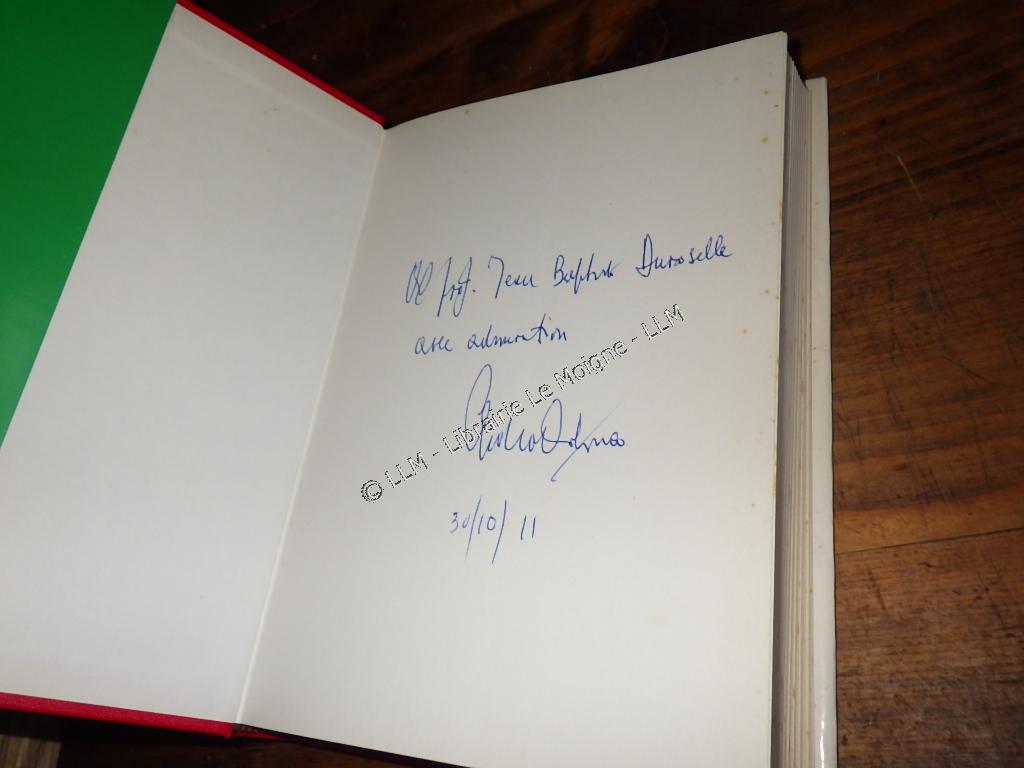 Al prof. Jean Baptiste Duroselle
avec admiration
30/10/11
© LLM - Librairie Le Moigne - LLM